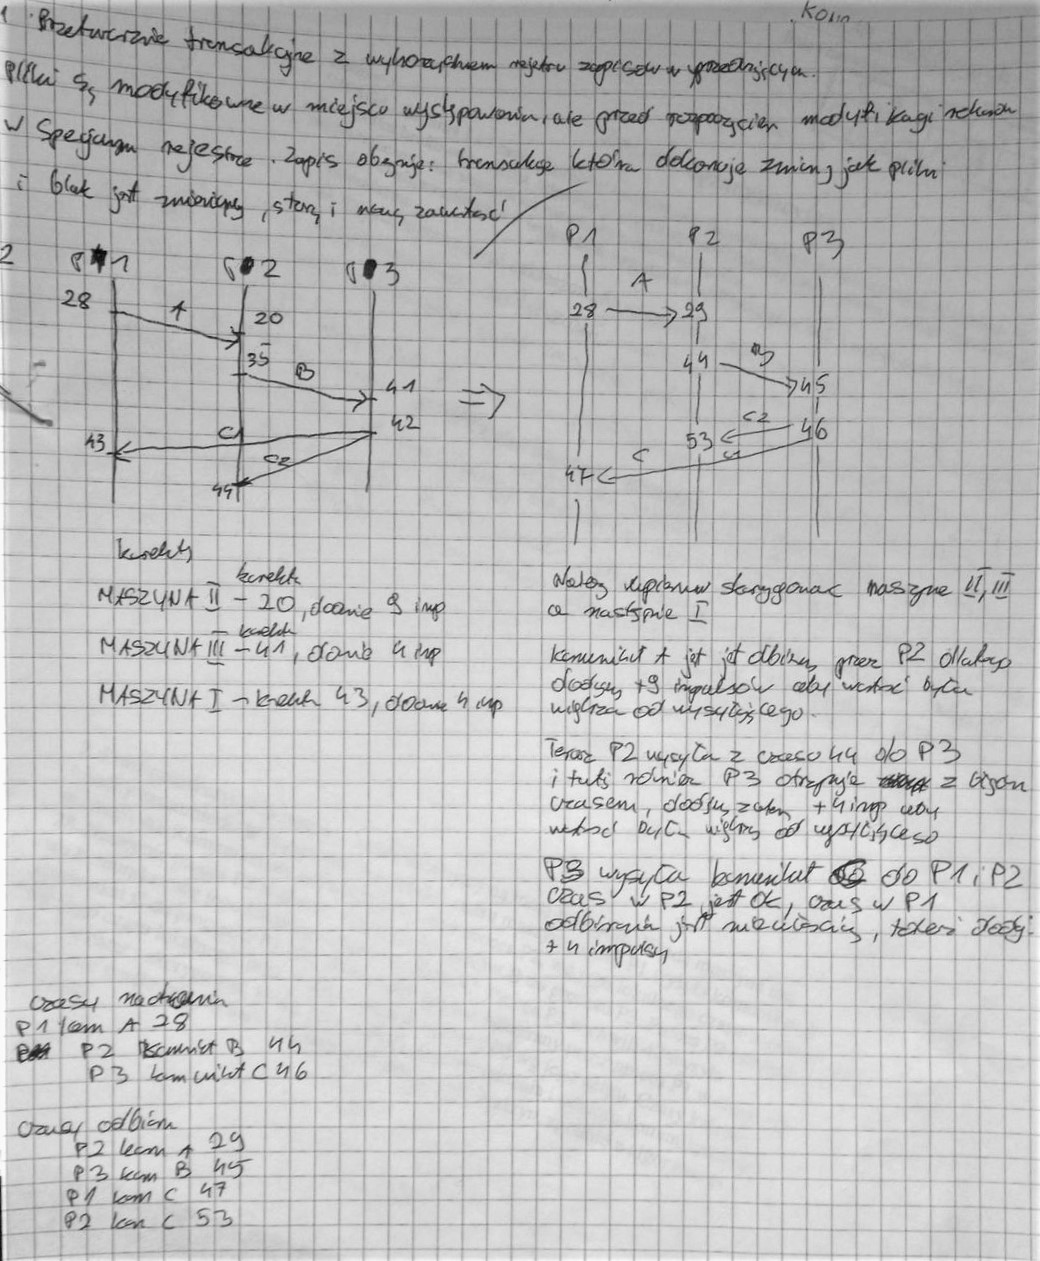 Kolin
1. Przetwarzanie transakcyjne z wykorzystaniem rejestru zapisów wyprzedzających.
Pliki są modyfikowane w miejscu występowania, ale przed rozpoczęciem modyfikacji rekordu
w specjalnym rejestrze. Zapis obejmuje: transakcje która dokonuje zmiany, jak pliki
i blok jest zmieniany, starą i nową zawartość
2
P1 P2 P3
28 A 20
35 B 41
42
43 C1
C2
44
⇒
P1 P2 P3
A
28 29
44 B 45
C2 46
53
C1
C
47
korekty
korekta
MASZYNA II – 20, dodanie 9 imp
korekta
MASZYNA III – 41, dodanie 4 imp
MASZYNA I – korekta 43, dodanie 4 imp
Należy skorygować maszynę II, III
a następnie I
komunikat A jet jet odbierany przez P2 dlatego
dodajemy +9 impulsów aby wartość była
większa od wysyłającego.
Teraz P2 wysyła z czasem 44 do P3
i tutaj również P3 otrzymuje z
czasem, dodajemy zatem +4 imp aby
wartość była większa od wysyłającego
P3 wysyła komunikat do P1 i P2
czas w P2 jest OK, czas w P1
odbierania jest niewłaściwy, dodaj.
+ 4 impulsy
czasy nadawania
P1 kom A 28
P2 komunikat B 44
P3 komunikat C 46
czasy odbioru
P2 kom A 29
P3 kom B 45
P1 kom C 47
P2 kom C 53